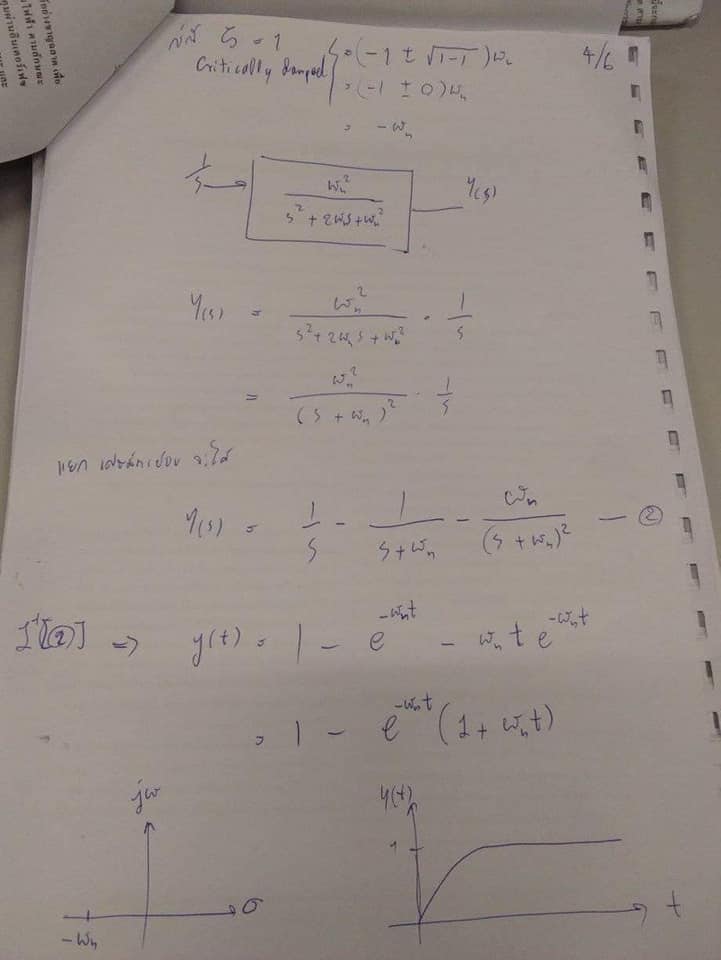 กรณี ζ = 1
Critically damped
= (-1 ± √1-1) ωn
= (-1 ± 0) ωn
= -ωn
4/6
1/s → ωn² / (s² + 2ωns + ωn²) — Y(s)
Y(s) = ωn² / (s² + 2ωns + ωn²) · 1/s
= ωn² / (s + ωn)² · 1/s
แยก เศษส่วนย่อย จะได้
Y(s) = 1/s - 1/(s + ωn) - ωn/(s + ωn)² — ②
ℒ⁻¹[②] ⇒ y(t) = 1 - e^(-ωnt) - ωn t e^(-ωnt)
= 1 - e^(-ωnt) (1 + ωnt)
jω
σ
-ωn
y(t)
1
t